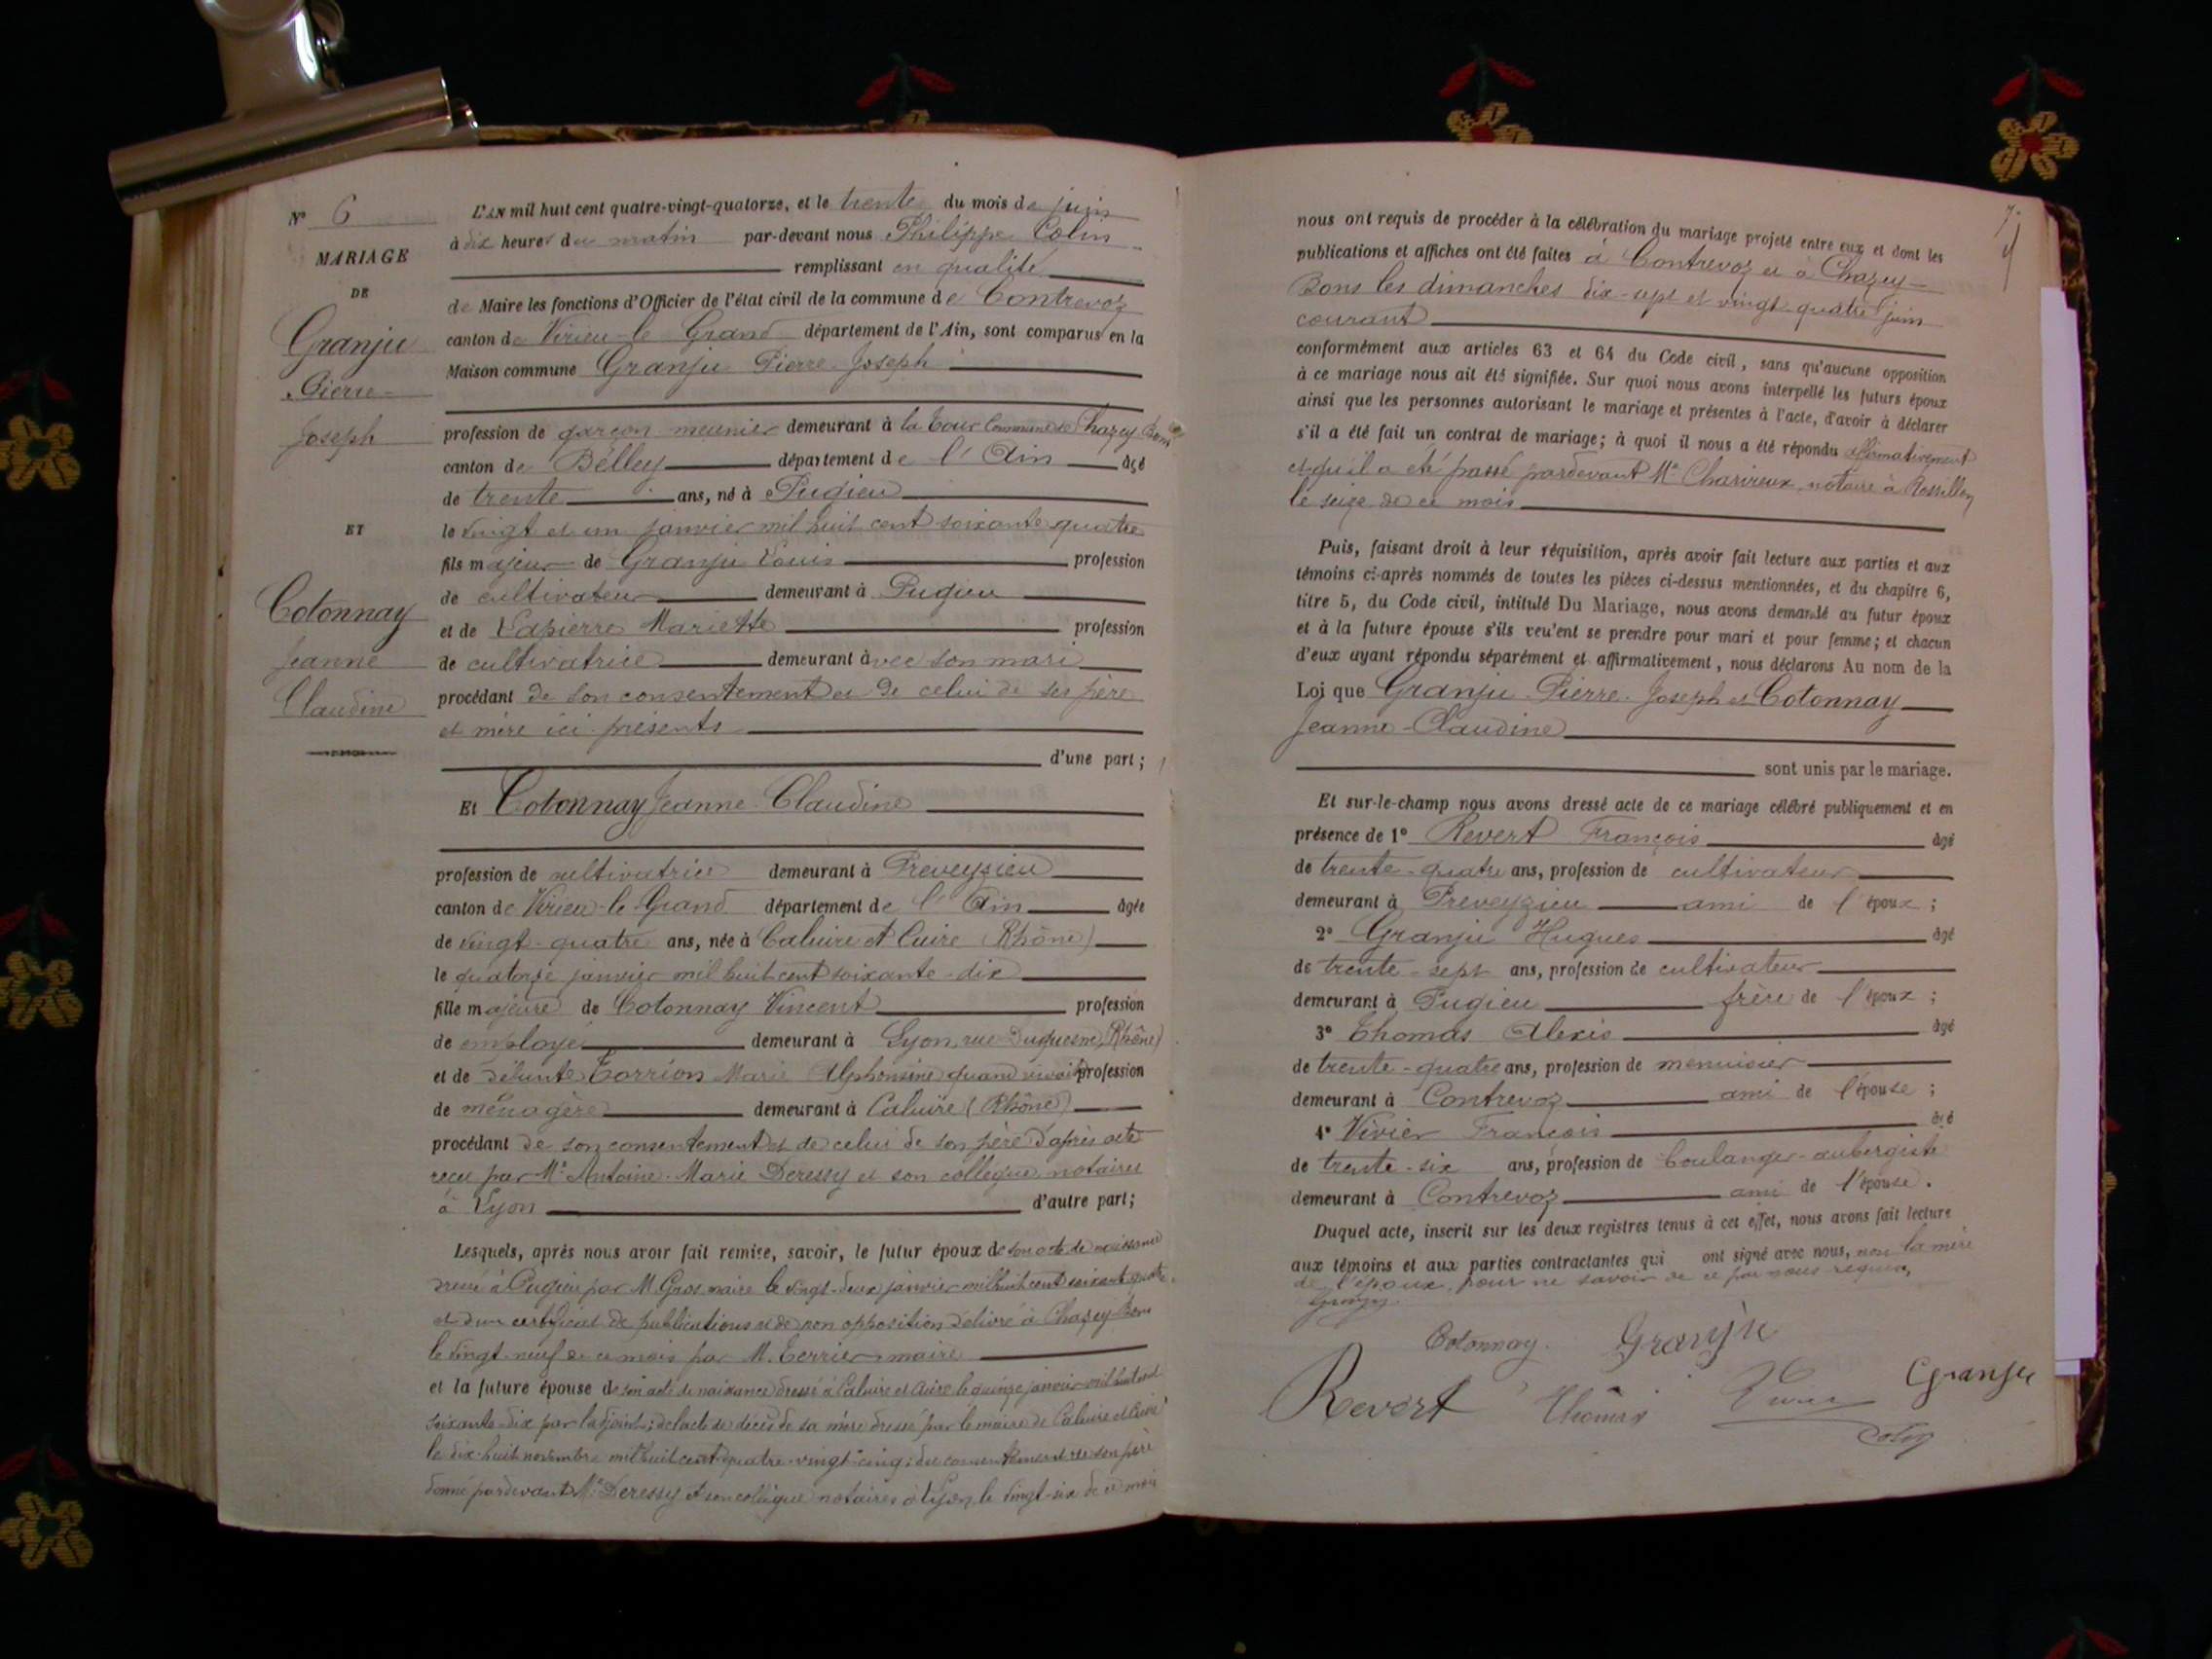 N° 6
MARIAGE
DE
Granju
Pierre
Joseph
ET
Cotonnay
Jeanne
Claudine
L'AN mil huit cent quatre-vingt-quatorze, et le trente du mois de juin
à dix heures du matin par-devant nous Philippe Colin
remplissant en qualité
de Maire les fonctions d'Officier de l'état civil de la commune de Contrevoz
canton de Virieu-le-Grand département de l'Ain, sont comparus en la
Maison commune Granju Pierre Joseph
profession de garçon meunier demeurant à la Tour Commune de Chazey-Bons
canton de Bélley département de l'Ain âgé
de trente ans, né à Pugieu
le vingt et un janvier mil huit cent soixante quatre
fils majeur de Granju Louis profession
de cultivateur demeurant à Pugieu
et de Lapierre Mariette profession
de cultivatrice demeurant avec son mari
procédant de son consentement et de celui de ses père
et mère ici présents
d'une part;
Et Cotonnay Jeanne Claudine
profession de cultivatrice demeurant à Preveyzieu
canton de Virieu-le-Grand département de l'Ain âgée
de vingt-quatre ans, née à Caluire et Cuire (Rhône)
le quatorze janvier mil huit cent soixante-dix
fille majeure de Cotonnay Vincent profession
de employé demeurant à Lyon, rue Duquesne, (Rhône)
et de défunte Torrion Marie Alphonsine quand vivait profession
de ménagère demeurant à Caluire (Rhône)
procédant de son consentement et de celui de son père d'après acte
reçu par Me Antoine-Marie Deressy et son collègue notaires
à Lyon d'autre part;
Lesquels, après nous avoir fait remise, savoir, le futur époux de son acte de naissance
dressé à Pugieu par M. Gros maire le vingt-deux janvier mil huit cent soixante quatre
et d'un certificat de publications et de non opposition délivré à Chazey-Bons
le vingt-neuf de ce mois par M. Terrier maire
et la future épouse de son acte de naissance dressé à Caluire et Cuire le quinze janvier mil huit cent
soixante-dix par l'adjoint; de l'acte de décès de sa mère dressé par le maire de Caluire et Cuire
le dix-huit novembre mil huit cent quatre-vingt-cinq; du consentement de son père
donné pardevant Me Deressy et son collègue notaires à Lyon, le vingt-six de ce mois
7.
nous ont requis de procéder à la célébration du mariage projeté entre eux et dont les
publications et affiches ont été faites à Contrevoz et à Chazey-
Bons les dimanches dix-sept et vingt-quatre juin
courant
conformément aux articles 63 et 64 du Code civil, sans qu'aucune opposition
à ce mariage nous ait été signifiée. Sur quoi nous avons interpellé les futurs époux
ainsi que les personnes autorisant le mariage et présentes à l'acte, d'avoir à déclarer
s'il a été fait un contrat de mariage; à quoi il nous a été répondu affirmativement
et qu'il a été passé pardevant Me Charvieux, notaire à Rossillon
le seize de ce mois
Puis, faisant droit à leur réquisition, après avoir fait lecture aux parties et aux
témoins ci-après nommés de toutes les pièces ci-dessus mentionnées, et du chapitre 6,
titre 5, du Code civil, intitulé Du Mariage, nous avons demandé au futur époux
et à la future épouse s'ils veulent se prendre pour mari et pour femme; et chacun
d'eux ayant répondu séparément et affirmativement, nous déclarons Au nom de la
Loi que Granju Pierre Joseph et Cotonnay
Jeanne-Claudine
sont unis par le mariage.
Et sur-le-champ nous avons dressé acte de ce mariage célébré publiquement et en
présence de 1° Revert François âgé
de trente-quatre ans, profession de cultivateur
demeurant à Preveyzieu ami de l'époux;
2° Granju Hugues âgé
de trente-sept ans, profession de cultivateur
demeurant à Pugieu frère de l'époux;
3° Thomas Alexis âgé
de trente-quatre ans, profession de menuisier
demeurant à Contrevoz ami de l'épouse;
4° Vivier François âgé
de trente-six ans, profession de boulanger-aubergiste
demeurant à Contrevoz ami de l'épouse.
Duquel acte, inscrit sur les deux registres tenus à cet effet, nous avons fait lecture
aux témoins et aux parties contractantes qui ont signé avec nous, non la mère
de l'époux pour ne savoir de ce par nous requise,
Cotonnay. Granju
Revert Thomas Vivier Granju
Colin